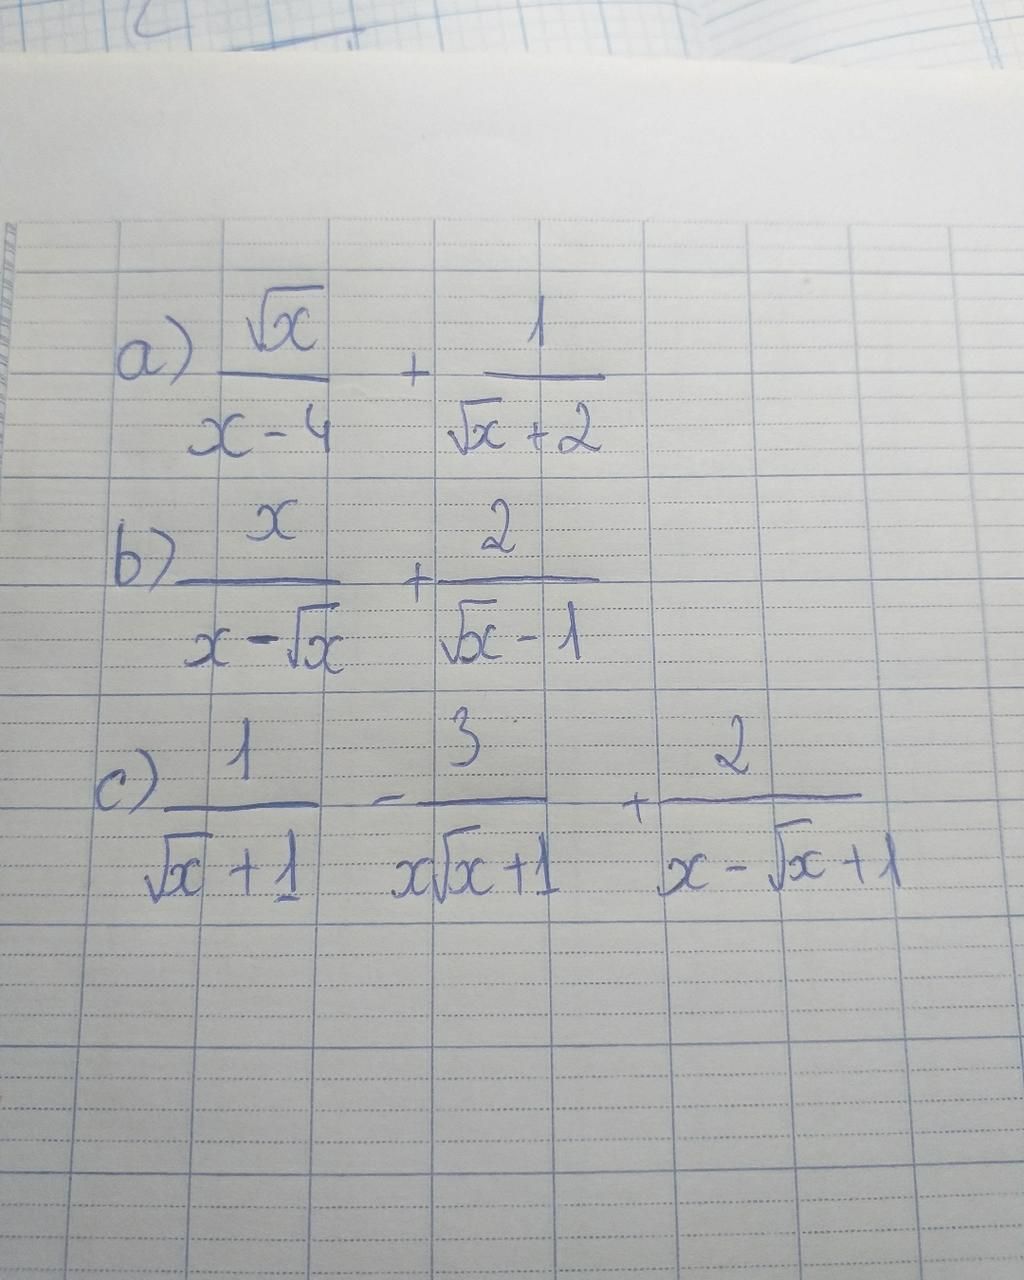 a) √x / (x - 4) + 1 / (√x + 2)
b) x / (x - √x) + 2 / (√x - 1)
c) 1 / (√x + 1) - 3 / (x√x + 1) + 2 / (x - √x + 1)